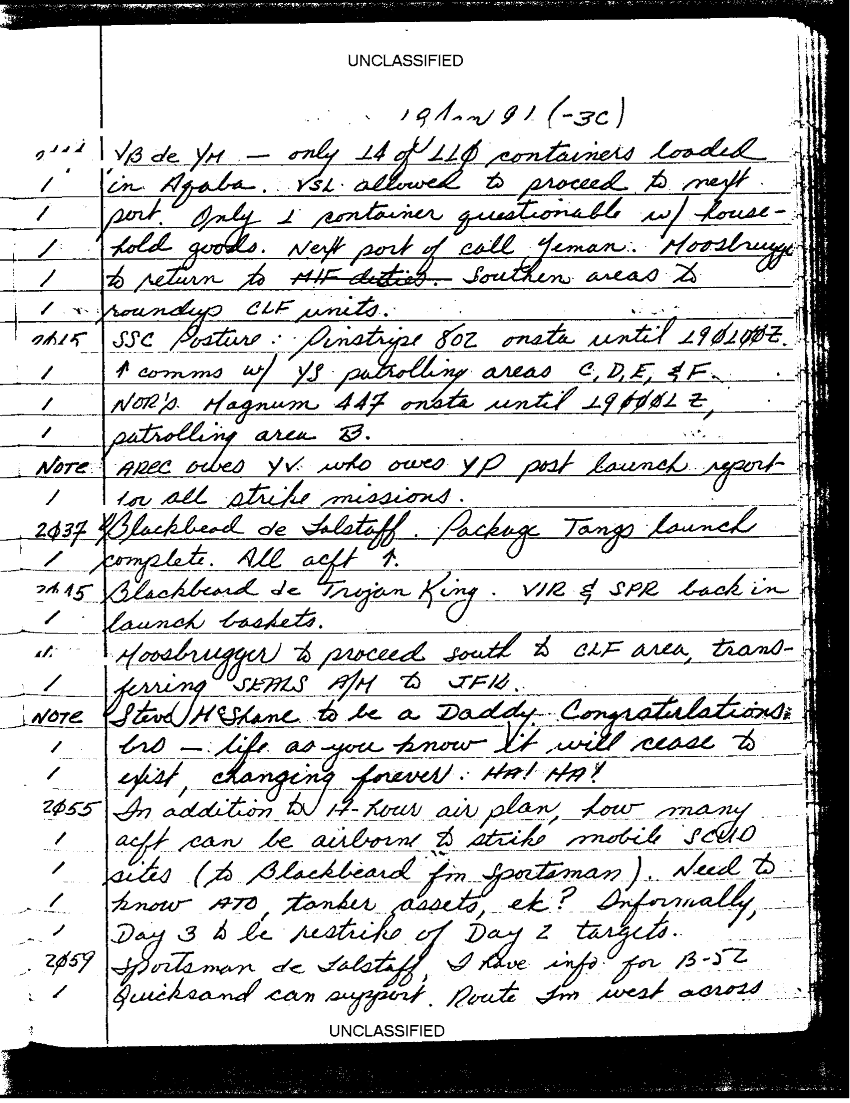 UNCLASSIFIED
19 Jan 91 (-3C)
YB de YM — only 14 of 11Ø containers loaded
/ in Aqaba. VSL allowed to proceed to next
/ port. Only 1 container questionable w/ house-
/ hold goods. Next port of call Yeman. Moosbrugge
/ to return to MIF duties. Southen areas to
/ roundup CLF units.
SSC Posture: Pinstripe 802 onsta until 19Ø1ØØZ.
/ ↑ comms w/ YS patrolling areas C, D, E, & F.
/ NOR'S Magnum 447 onsta until 19ØØØ1Z,
/ patrolling area B.
NOTE AREC owes YV who owes YP post launch report
/ for all strike missions.
2Ø37 Blackbead de Falstaff. Package Tango launch
/ complete. All acft ↑.
Blackbeard de Trojan King. VIR & SPR back in
/ launch baskets.
Moosbrugger to proceed south to CLF area, trans-
/ ferring SEALS A/M to JFK.
NOTE Steve McShane to be a Daddy. Congratulations
/ bro — life as you know it will cease to
/ exist, changing forever. HA! HA!
2Ø55 In addition to 12-hour air plan, how many
/ acft can be airborne to strike mobile SCUD
/ sites (to Blackbeard fm Sportsman). Need to
/ know ATO, tanker assets, etc? Informally,
/ Day 3 to be restrike of Day 2 targets.
2Ø59 Sportsman de Falstaff, I have info for B-52
/ Quicksand can support. Route fm west across
UNCLASSIFIED